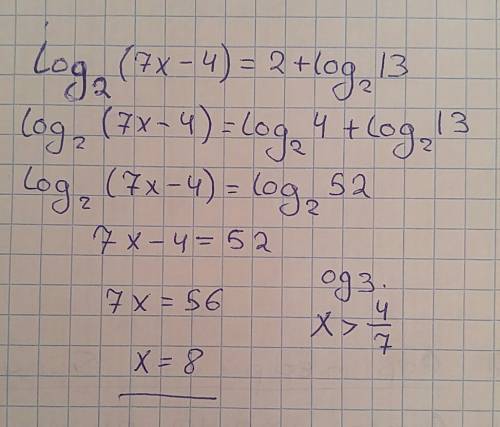 log₂(7x-4)=2+log₂13
log₂(7x-4)=log₂4+log₂13
log₂(7x-4)=log₂52
7x-4=52
7x=56
x=8
одз.
x>4/7